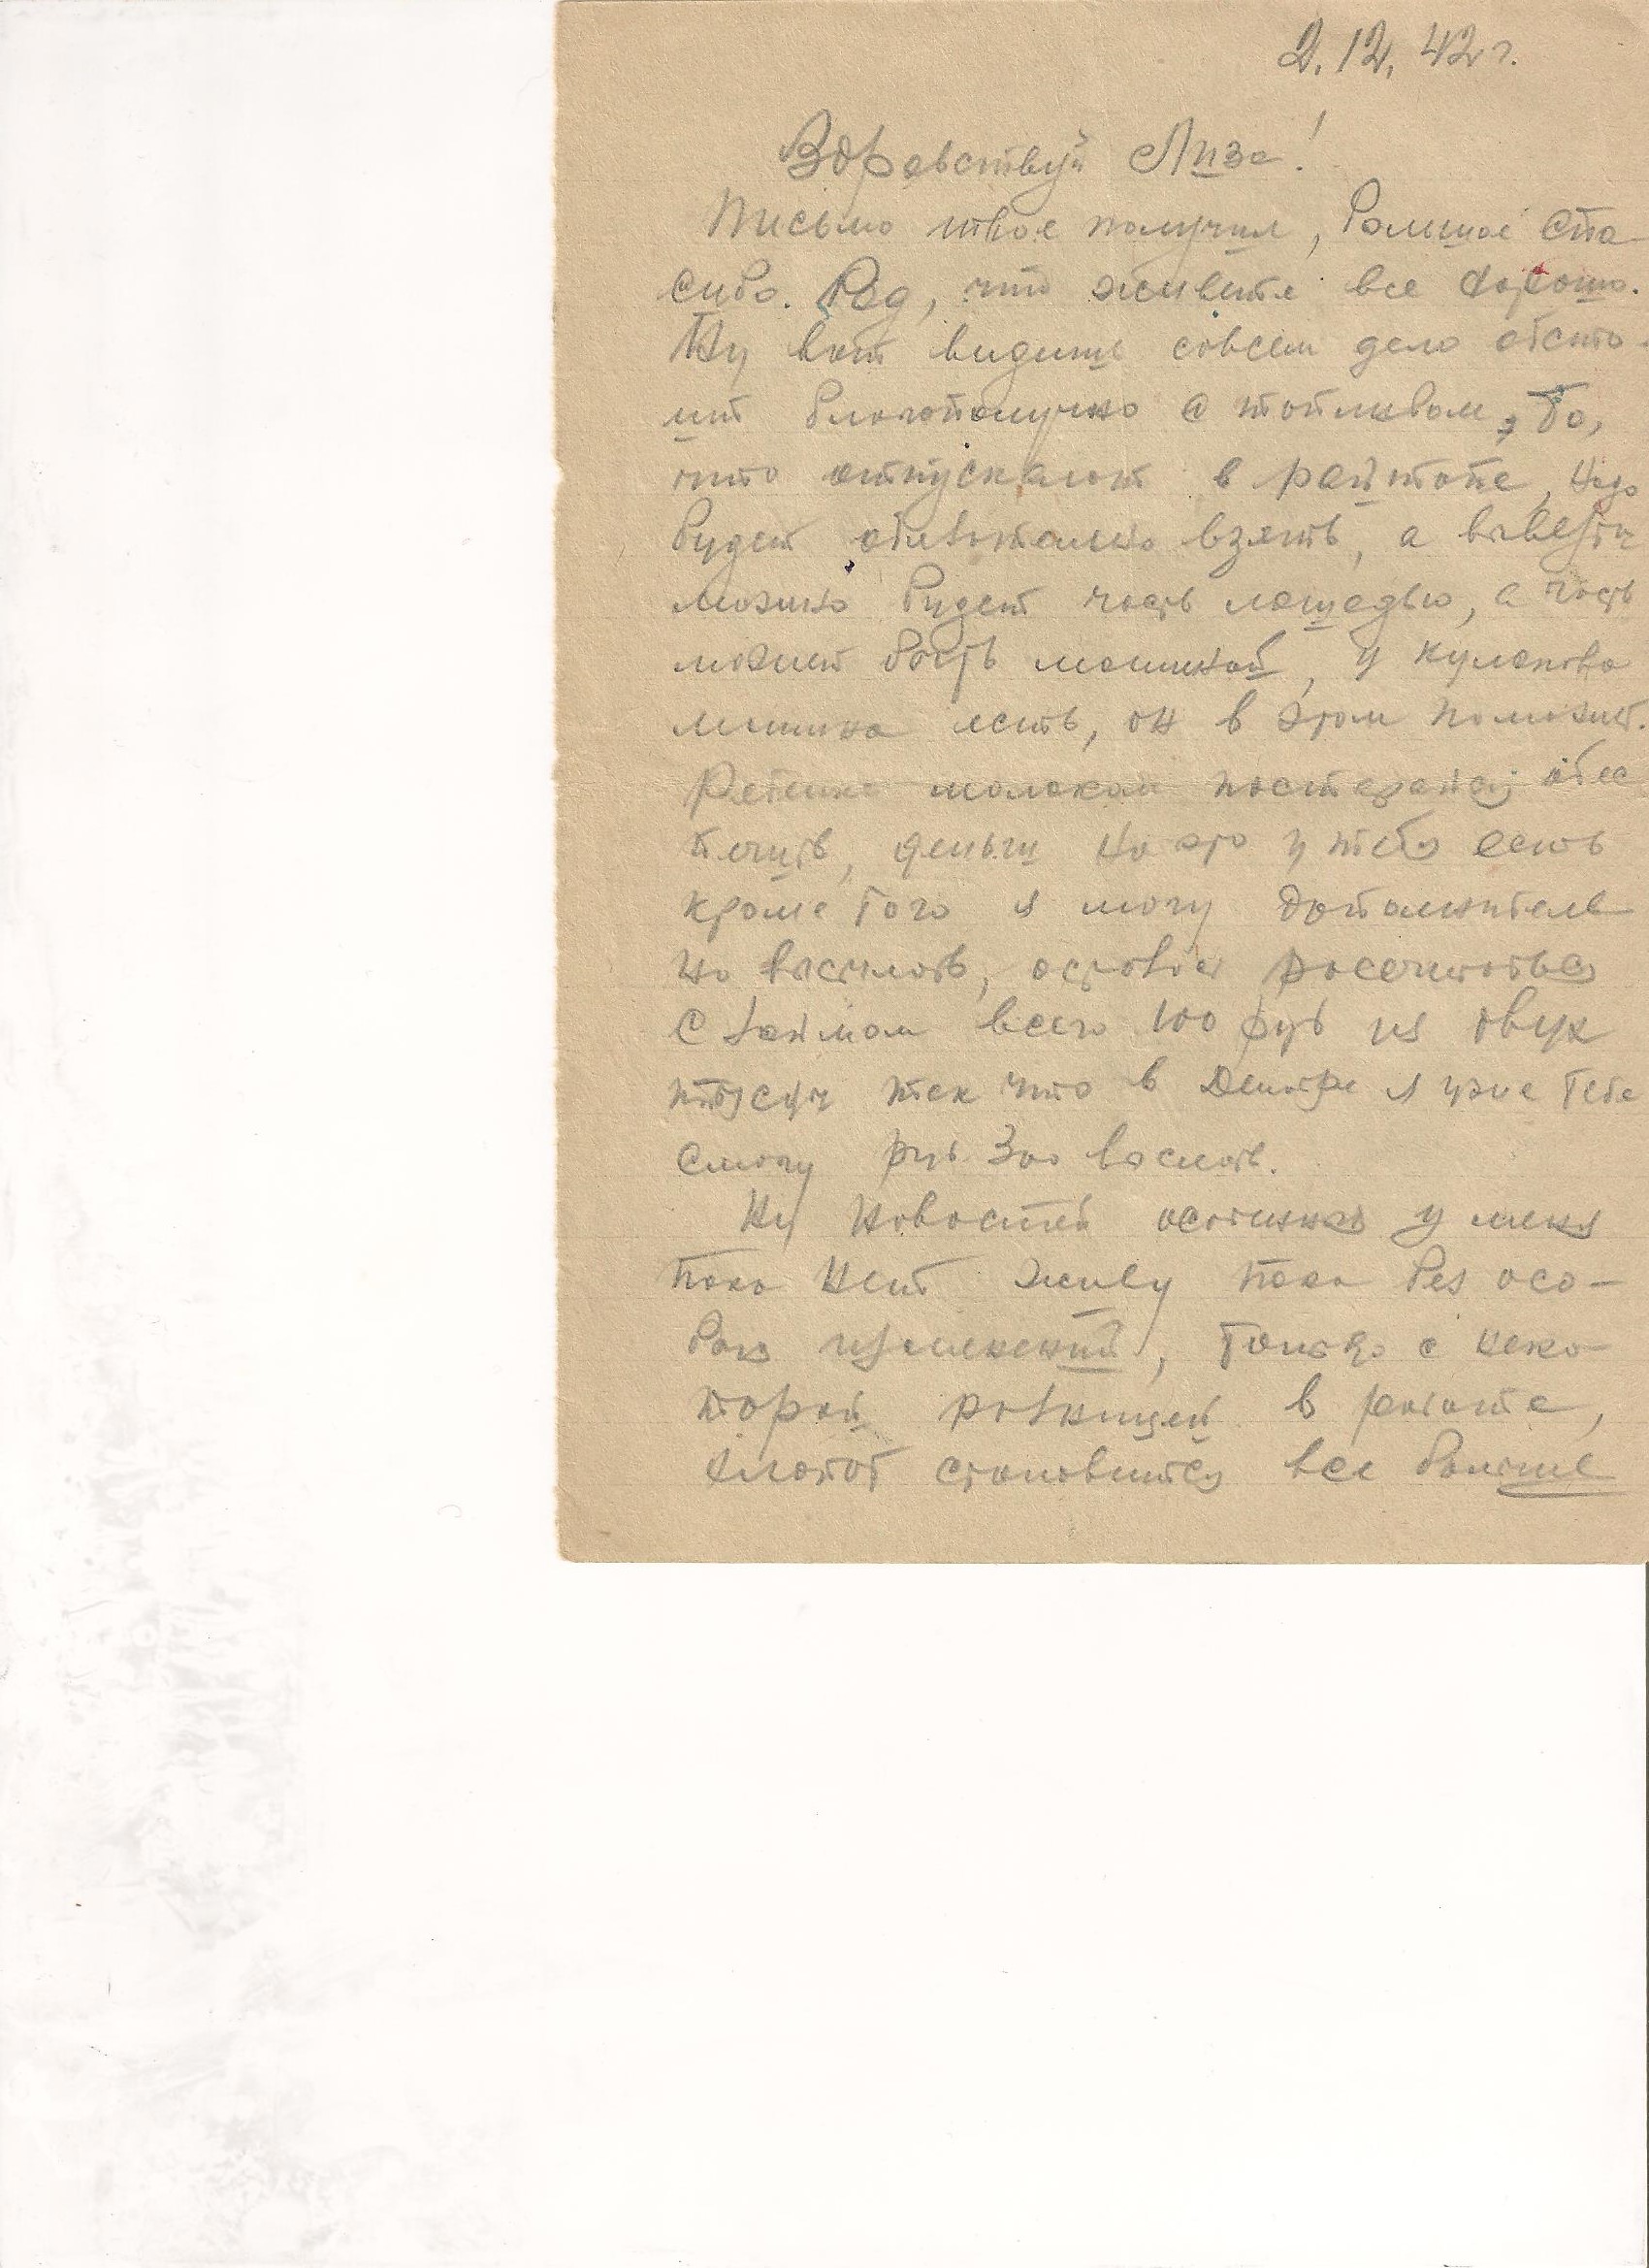 2.12.42 г.
Здравствуй Лиза!
Письмо твое получил, большое спа-
сибо. Рад, что живете все хорошо.
Ну вот видишь совсем дело обсто-
ит благополучно с топливом, То,
что отпускают в райтопе, надо
будет обязательно взять, а вывезти
можно будет часть лошадью, а часть
может быть машиной, у Кулакова
машина есть, он в этом поможет.
Ребенка молоком постарайся обес
печить, деньги на это у тебя есть
кроме того я могу дополнитель
но выслать, осталось рассчитаться
с займом всего 100 руб из двух
тысяч так что в Декабре я уже тебе
смогу руб 300 выслать.
Ну новостей особенных у меня
пока нет живу пока без осо-
бых изменений, только с неко-
торой разницей в работе,
хлопот становится все больше